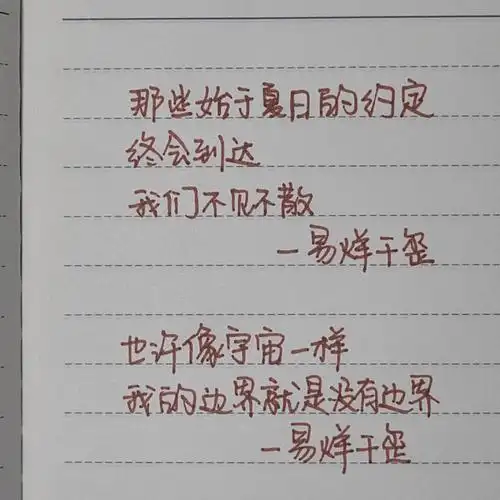 那些始于夏日的约定
终会到达
我们不见不散
一易烊千玺
也许像宇宙一样
我的边界就是没有边界
一易烊千玺